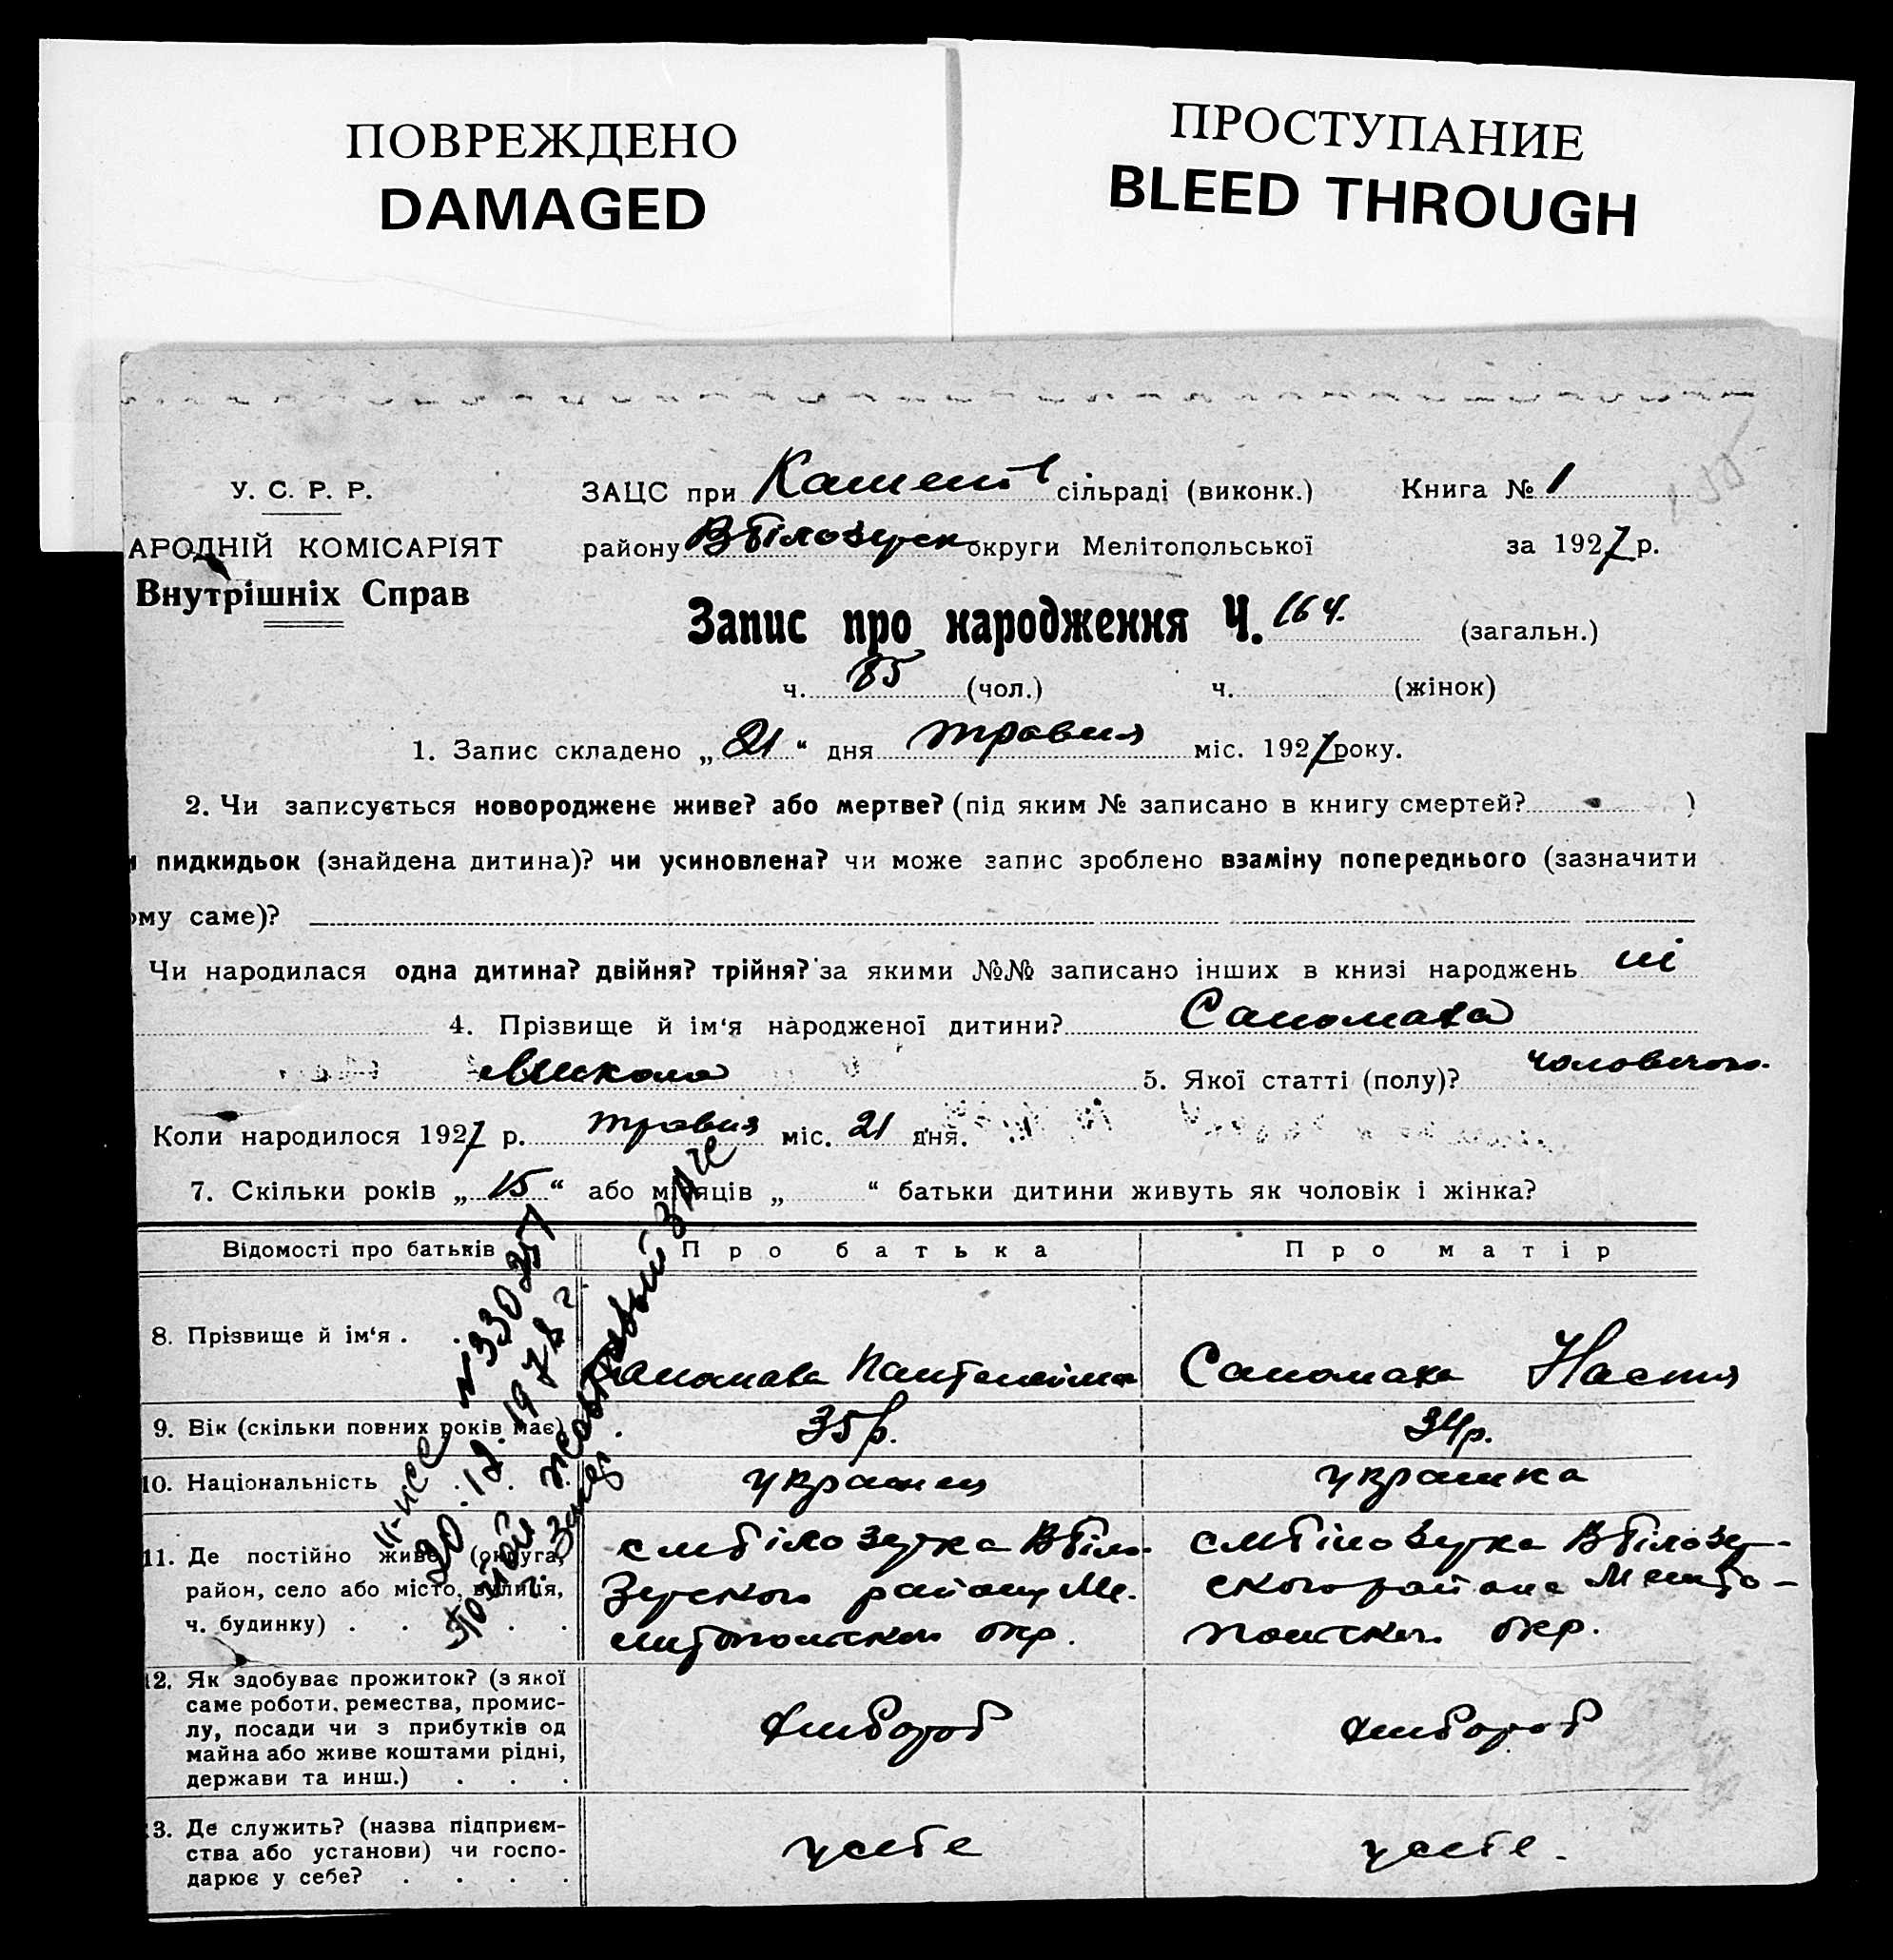 ПОВРЕЖДЕНО
DAMAGED
ПРОСТУПАНИЕ
BLEED THROUGH
У. С. Р. Р.
АРОДНІЙ КОМІСАРІЯТ
Внутрішніх Справ
ЗАЦС при сільраді (виконк.) Книга № 1
району В Білозерск округи Мелітопольської за 1927 р.
Запис про народження Ч. 164. (загальн.)
ч. 85 (чол.) ч. (жінок)
1. Запис складено „ 21 “ дня травня міс. 1927 року.
2. Чи записується новороджене живе? або мертве? (під яким № записано в книгу смертей? )
и пидкидьок (знайдена дитина)? чи усиновлена? чи може запис зроблено взаміну попереднього (зазначити
ому саме)?
Чи народилася одна дитина? двійня? трійня? за якими №№ записано інших в книзі народжень ні
4. Прізвище й ім‘я народженої дитини? Саломаха
Микола 5. Якої статті (полу)? чоловічого.
Коли народилося 1927 р. травня міс. 21 дня.
7. Скільки років „ 15 “ або місяців „ “ батьки дитини живуть як чоловік і жінка?
Відомості про батьків Про батька Про матір
8. Прізвище й ім‘я . Саломаха Пантелейма Саломаха Настя
9. Вік (скільки повних років має) . 35 р. 34 р.
10. Національність украинец украинка
11. Де постійно живе (округа, район, село або місто, вулиця, ч. будинку) .
см Білозерка В Біло-
зерского району Ме-
литопольскои окр.
см Білозерка В Білозер-
ского району Мелито-
польскои окр.
12. Як здобуває прожиток? (з якої
саме роботи, ремества, промис-
лу, посади чи з прибутків од
майна або живе коштами рідні,
держави та инш.) . . .
хлибороб хлибороб
13. Де служить? (назва підприєм-
ства або установи) чи госпо-
дарює у себе? . . . .
у себе у себе.
№ 330257
20.12.1978 г